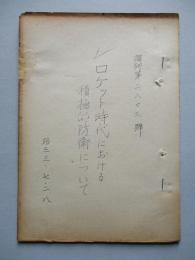 ロケット時代における
積極的防衛について
昭三三・七・二八